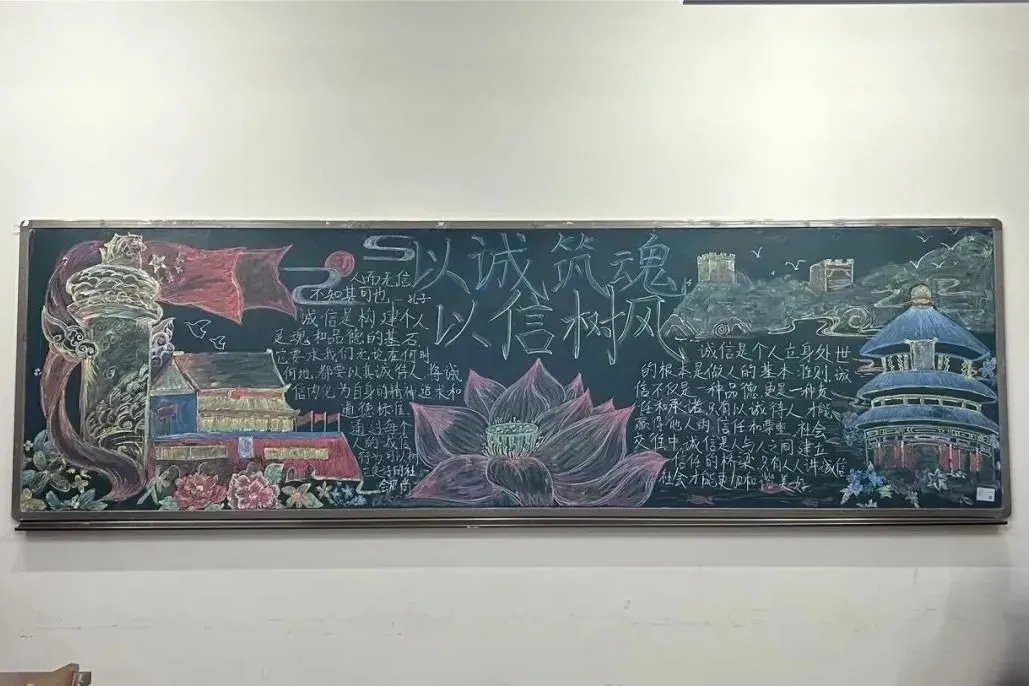 以诚筑魂
以信树风
人而无信
不知其可也
孔子
诚信是构建个人
灵魂和品德的基石
它要求我们无论在何时
何地,都要以真诚待人,将诚
信内化为自身的精神追求和
道德标准
通过每个
人的诚信
行为可以
社
会风尚
诚信是个人立身处世
的根本是做人的基本准则,诚
信不仅是一种品德更是一种责
任和承诺只有以诚待人才能
赢得他人的信任和尊重 社会
交往中,诚信是人与人之间建立
信任的桥梁 只有人人讲诚信
社会才能更加和谐美好